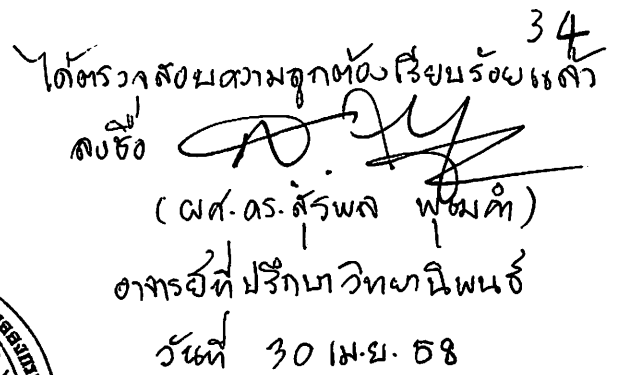 34
ได้ตรวจสอบความถูกต้องเรียบร้อยแล้ว
ลงชื่อ
(ผศ.ดร.สุรพล พุฒคำ)
อาจารย์ที่ปรึกษาวิทยานิพนธ์
วันที่ 30 เม.ย. 58